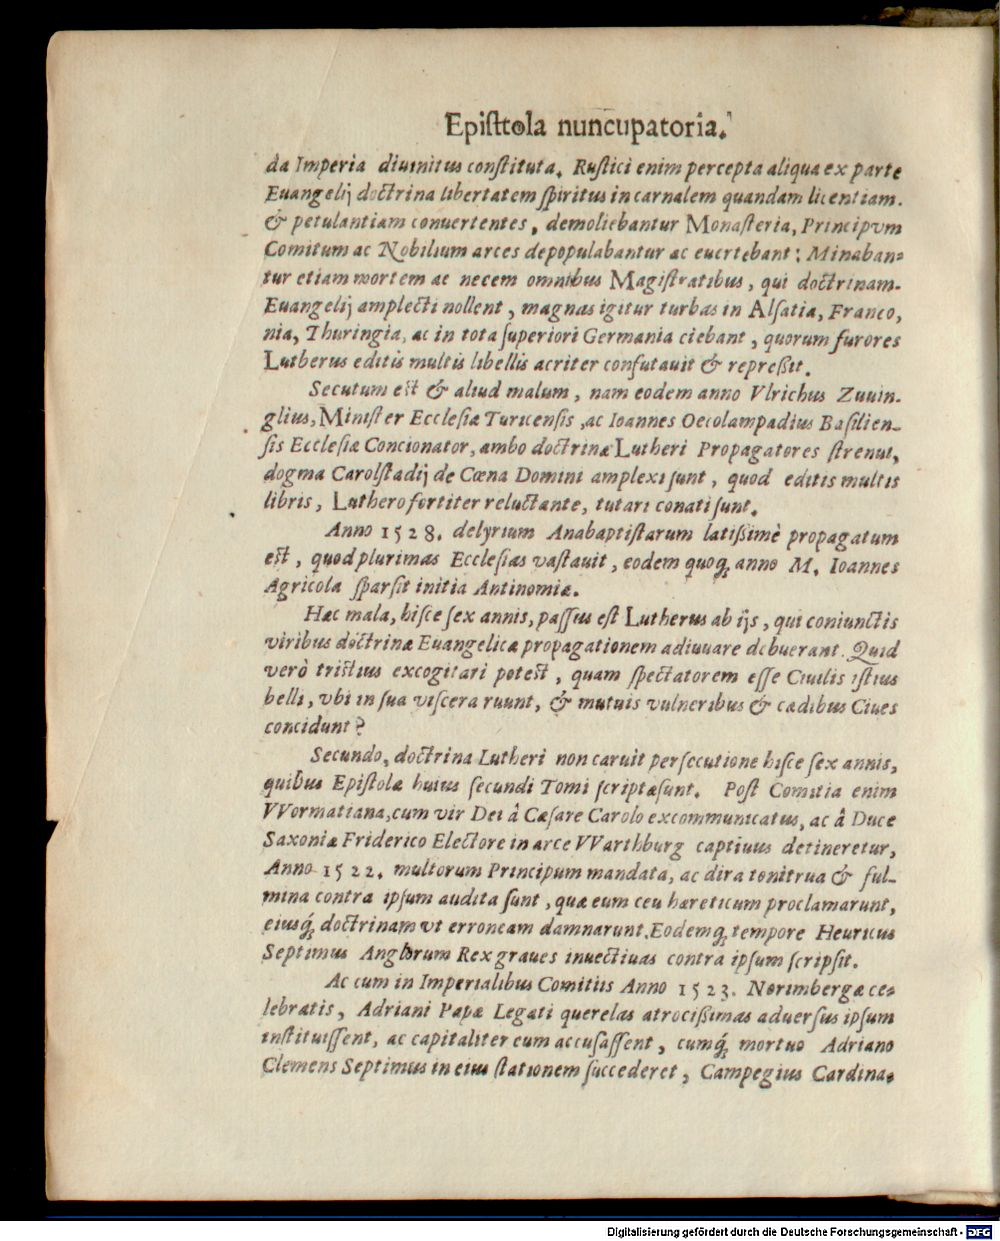 Episttola nuncupatoria.
da Imperia diuinitus constituta. Rustici enim percepta aliqua ex parte
Euangelij doctrina libertatem spiritus in carnalem quandam licentiam.
& petulantiam conuertentes, demoliebantur Monasteria, Principvm
Comitum ac Nobilium arces depopulabantur ac euertebant: Minaban-
tur etiam mortem ae necem omnibus Magistratibus, qui doctrinam.
Euangelij amplecti nollent, magnas igitur turbas in Alsatia, Franco,
nia, Thuringia, ac in tota superiori Germania ciebant, quorum furores
Lutherus editis multis libellis acriter confutauit & repreßit.
Secutum est & aliud malum, nam eodem anno Vlrichus Zuuin-
glius, Minister Ecclesiæ Turicensis, ac Ioannes Oecolampadius Basilien-
sis Ecclesiæ Concionator, ambo doctrinæ Lutheri Propagatores strenui,
dogma Carolstadij de Cœna Domini amplexi sunt, quod editis multis
libris, Luthero fortiter reluctante, tutari conati sunt.
Anno 1528. delyrium Anabaptistarum latißimè propagatum
est, quod plurimas Ecclesias vastauit, eodem quoq; anno M. Ioannes
Agricola sparsit initia Antinomiæ.
Hæc mala, hisce sex annis, passus est Lutherus ab ijs, qui coniunctis
viribus doctrinæ Euangelicæ propagationem adiuuare debuerant. Quid
verò tristius excogitari potest, quam spectatorem esse Ciuilis istius
belli, vbi in sua viscera ruunt, & mutuis vulneribus & cædibus Ciues
concidunt?
Secundo, doctrina Lutheri non caruit persecutione hisce sex annis,
quibus Epistolæ huius secundi Tomi scriptæ sunt. Post Comitia enim
VVormatiana, cum vir Dei â Cæsare Carolo excommunicatus, ac â Duce
Saxoniæ Friderico Electore in arce VVarthburg captiuus detineretur,
Anno 1522. multorum Principum mandata, ac dira tonitrua & ful-
mina contra ipsum audita sunt, quæ eum ceu hæreticum proclamarunt,
eiusq; doctrinam vt erroneam damnarunt. Eodemq; tempore Heuricus
Septimus Anglorum Rex graues inuectiuas contra ipsum scripsit.
Ac cum in Imperialibus Comitiis Anno 1523. Norimbergæ ce-
lebratis, Adriani Papæ Legati querelas atrocißimas aduersus ipsum
instituissent, ac capitaliter eum accusassent, cumq; mortuo Adriano
Clemens Septimus in eius stationem succederet, Campegius Cardina-
Digitalisierung gefördert durch die Deutsche Forschungsgemeinschaft - DFG